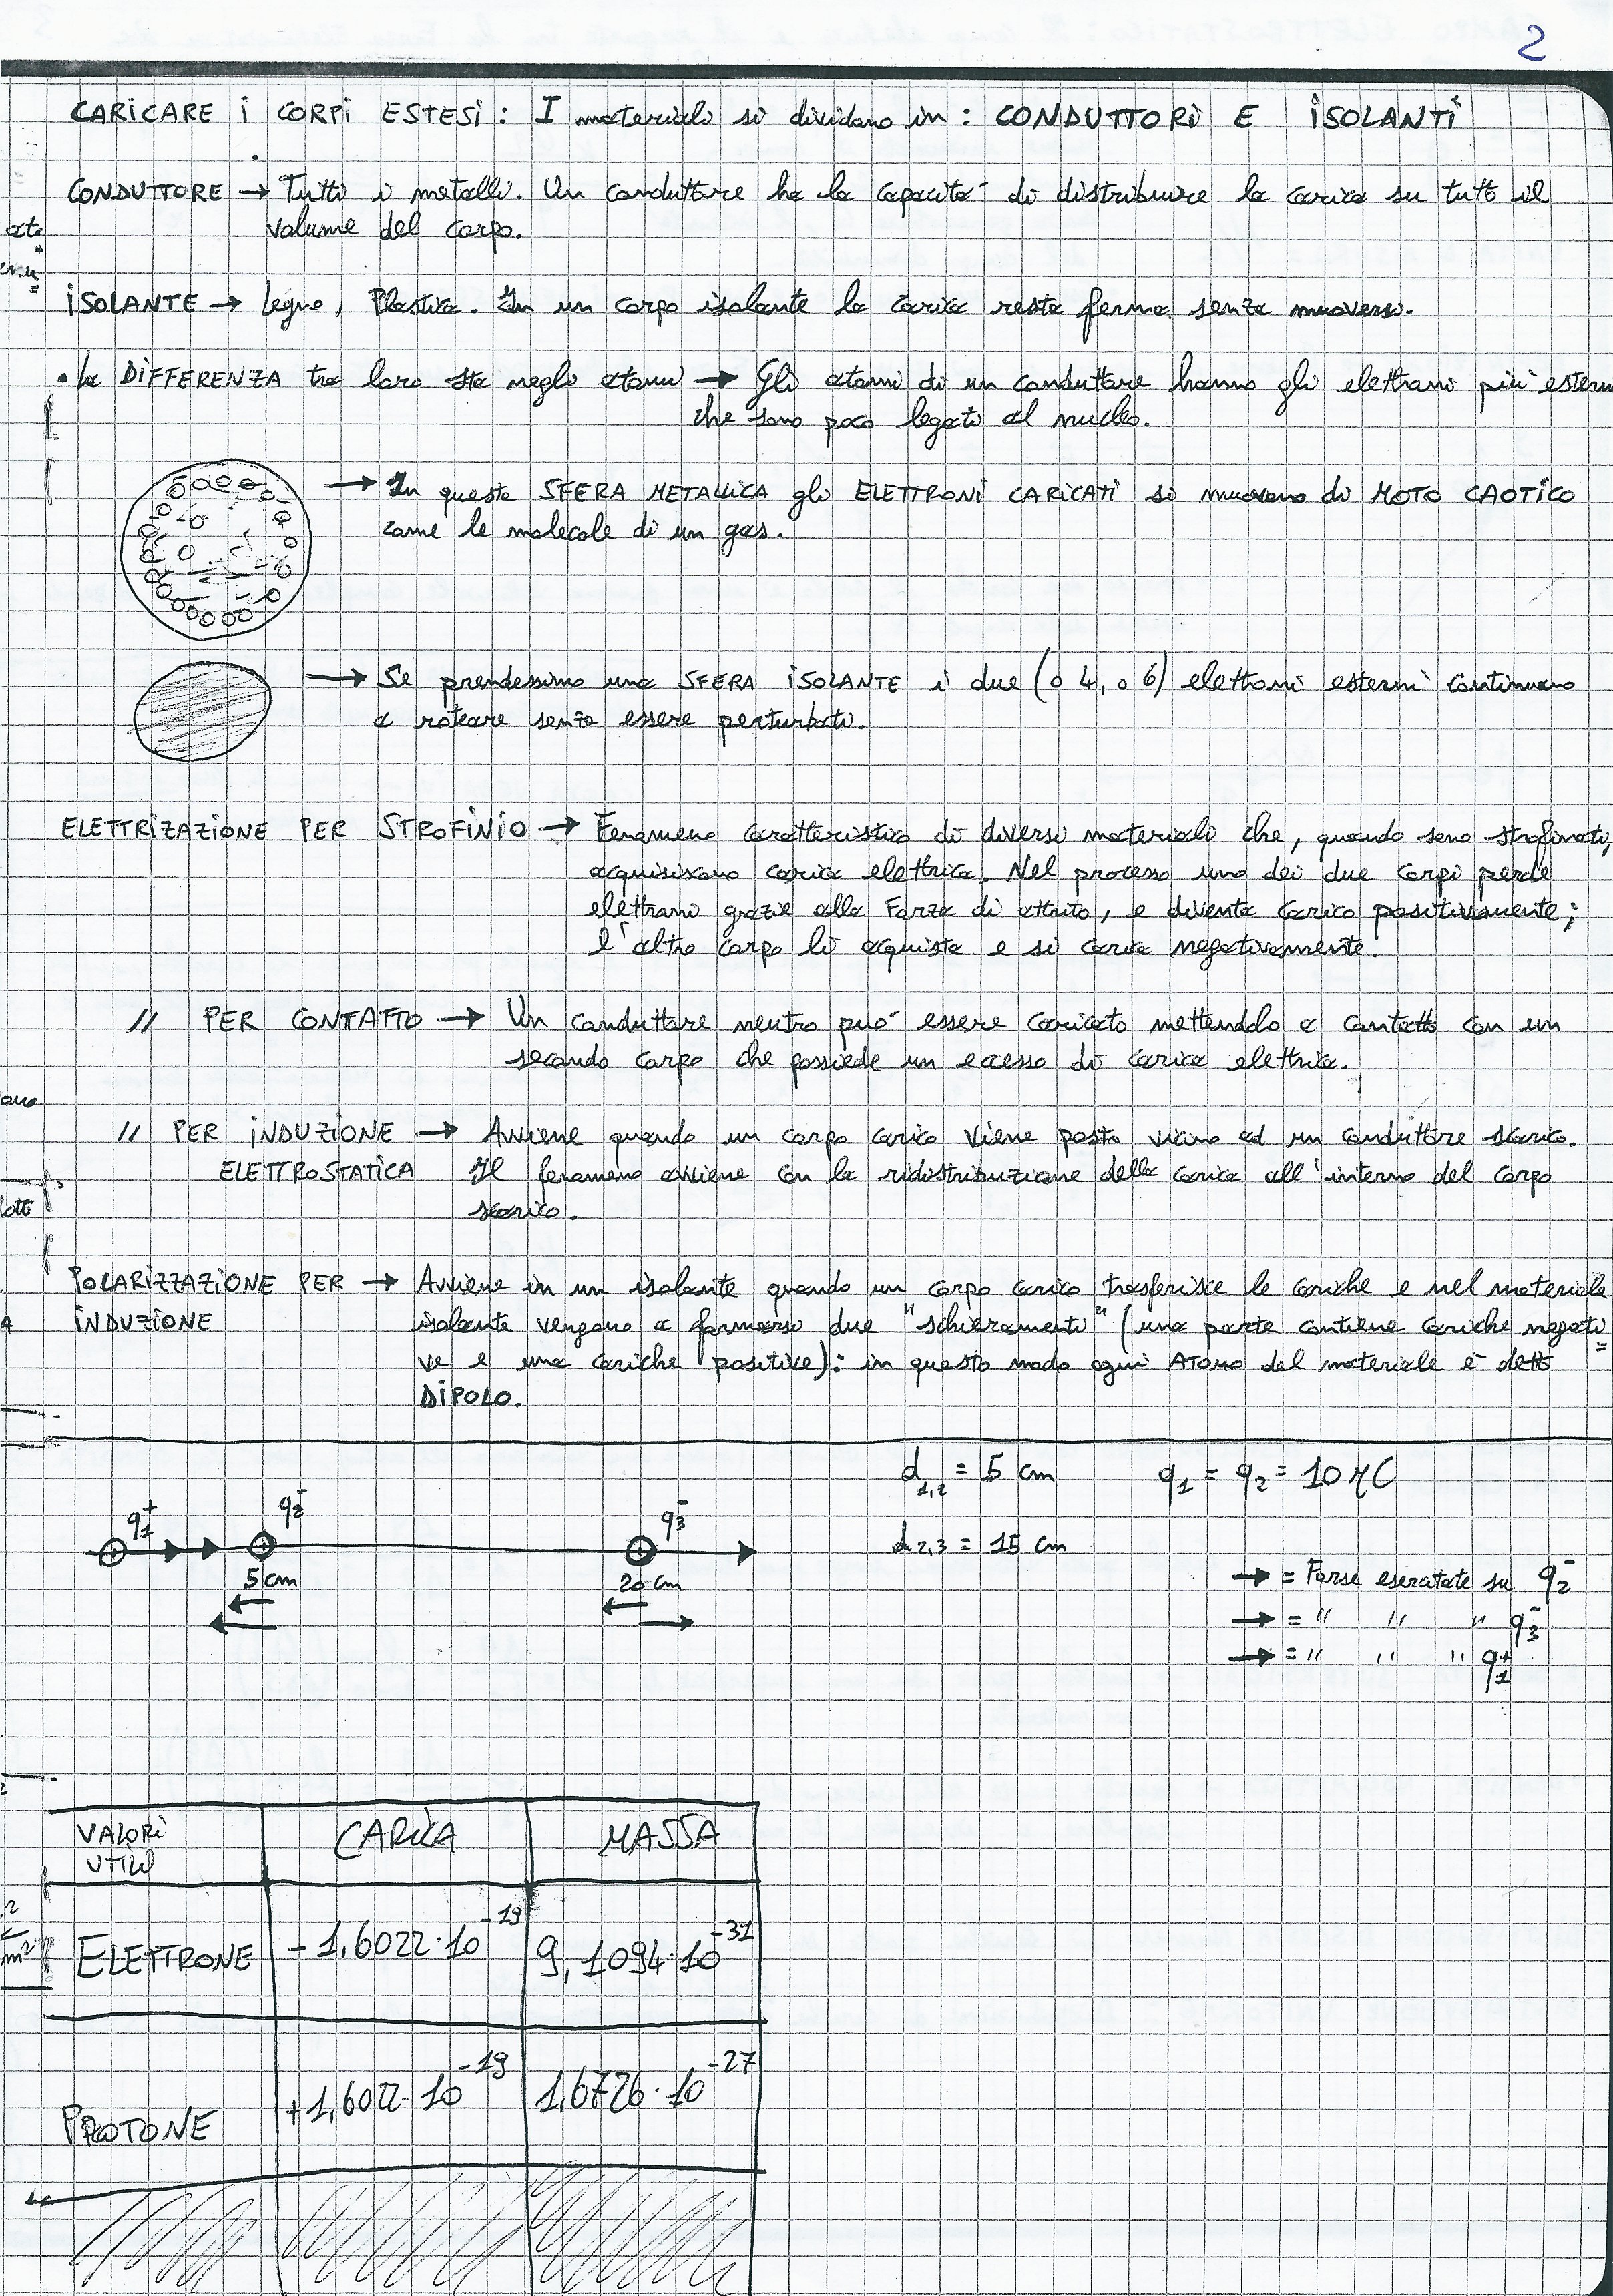 2
CARICARE I CORPI ESTESI: I materiali si dividono in: CONDUTTORI E ISOLANTI
CONDUTTORE → Tutti i metalli. Un conduttore ha la capacità di distribuire la carica su tutto il
volume del corpo.
ISOLANTE → Legno, Plastica. In un corpo isolante la carica resta ferma senza muoversi.
• La DIFFERENZA tra loro sta negli atomi → Gli atomi di un conduttore hanno gli elettroni più esterni
che sono poco legati al nucleo.
→ In questa SFERA METALLICA gli ELETTRONI CARICATI si muovono di MOTO CAOTICO
come le molecole di un gas.
→ Se prendessimo una SFERA ISOLANTE i due (o 4, o 6) elettroni esterni continuano
a roteare senza essere perturbati.
ELETTRIZAZIONE PER STROFINIO → Fenomeno caratteristico di diversi materiali che, quando sono strofinati,
acquisiscono carica elettrica. Nel processo uno dei due corpi perde
elettroni grazie alla Forza di attrito, e diventa carico positivamente;
l'altro corpo li acquista e si carica negativamente.
// PER CONTATTO → Un conduttore neutro può essere caricato mettendolo a contatto con un
secondo corpo che possiede un eccesso di carica elettrica.
// PER INDUZIONE → Avviene quando un corpo carico viene posto vicino ad un conduttore scarico.
ELETTROSTATICA Il fenomeno avviene con la ridistribuzione della carica all'interno del corpo
scarico.
POLARIZZAZIONE PER → Avviene in un isolante quando un corpo carico trasferisce le cariche e nel materiale
INDUZIONE isolante vengono a formarsi due "schieramenti" (una parte contiene cariche negati=
ve e una cariche positive): in questo modo ogni ATOMO del materiale è detto
DIPOLO.
d1,2 = 5 cm q1 = q2 = 10 μC
q1+ q2- q3- d2,3 = 15 cm
5 cm 20 cm
→ = Forse eseratate su q2-
→ = // // // q3-
→ = // // // q1+
VALORI UTILI CARICA MASSA
ELETTRONE -1,6022·10^-19 9,1094·10^-31
PROTONE +1,6022·10^-19 1,6726·10^-27